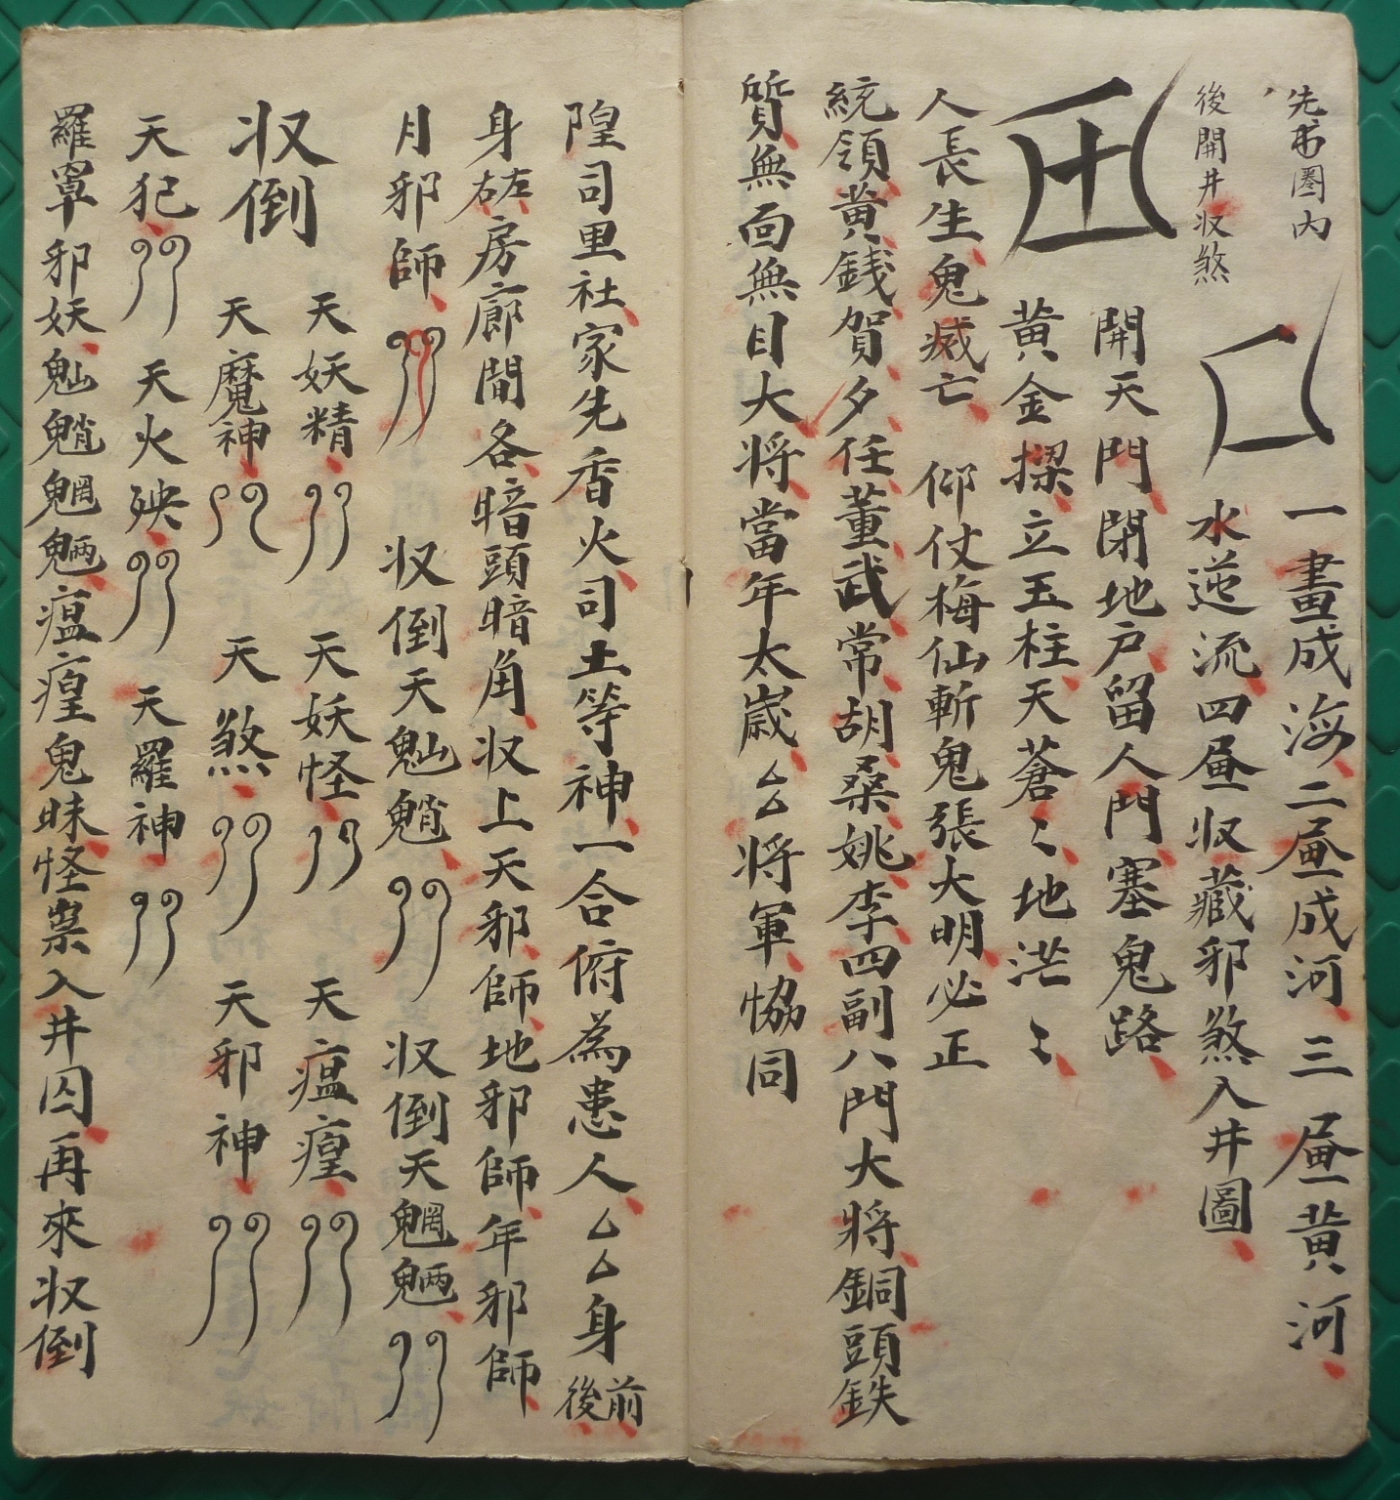 先弗圏內
後開井収煞
一畫成海二𦘕成河三𦘕黄河
水逆流四𦘕収藏邪煞入井圖
開天門閉地户留人門塞鬼路
黄金探立玉柱天蒼〻地茫〻
人長生鬼烕亡 仰仗梅仙斬鬼張大明必正
統領黄錢賀夕任董武常胡桑姚李四副八門大将銅頭鉄
質無面無目大将當年太嵗厶厶将軍恊同
隍司里社家先香火司土等神一合俯為患人厶厶身前後
身左右房廊間各暗頭暗角収上天邪師地邪師年邪師
月邪師 収倒天魈魈 収倒天魍魎
収倒
天妖精 天妖怪 天瘟㾮
天魔神 天煞 天邪神
天犯 天火殃 天羅神
羅罩邪妖魈魍魎瘟㾮鬼昧怪祟入井囚再來収倒